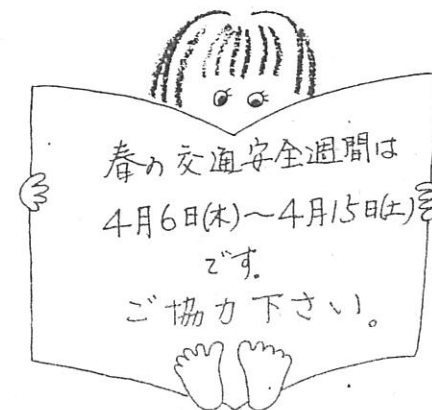 春の交通安全週間は
4月6日(木)〜4月15日(土)
です。
ご協力下さい。